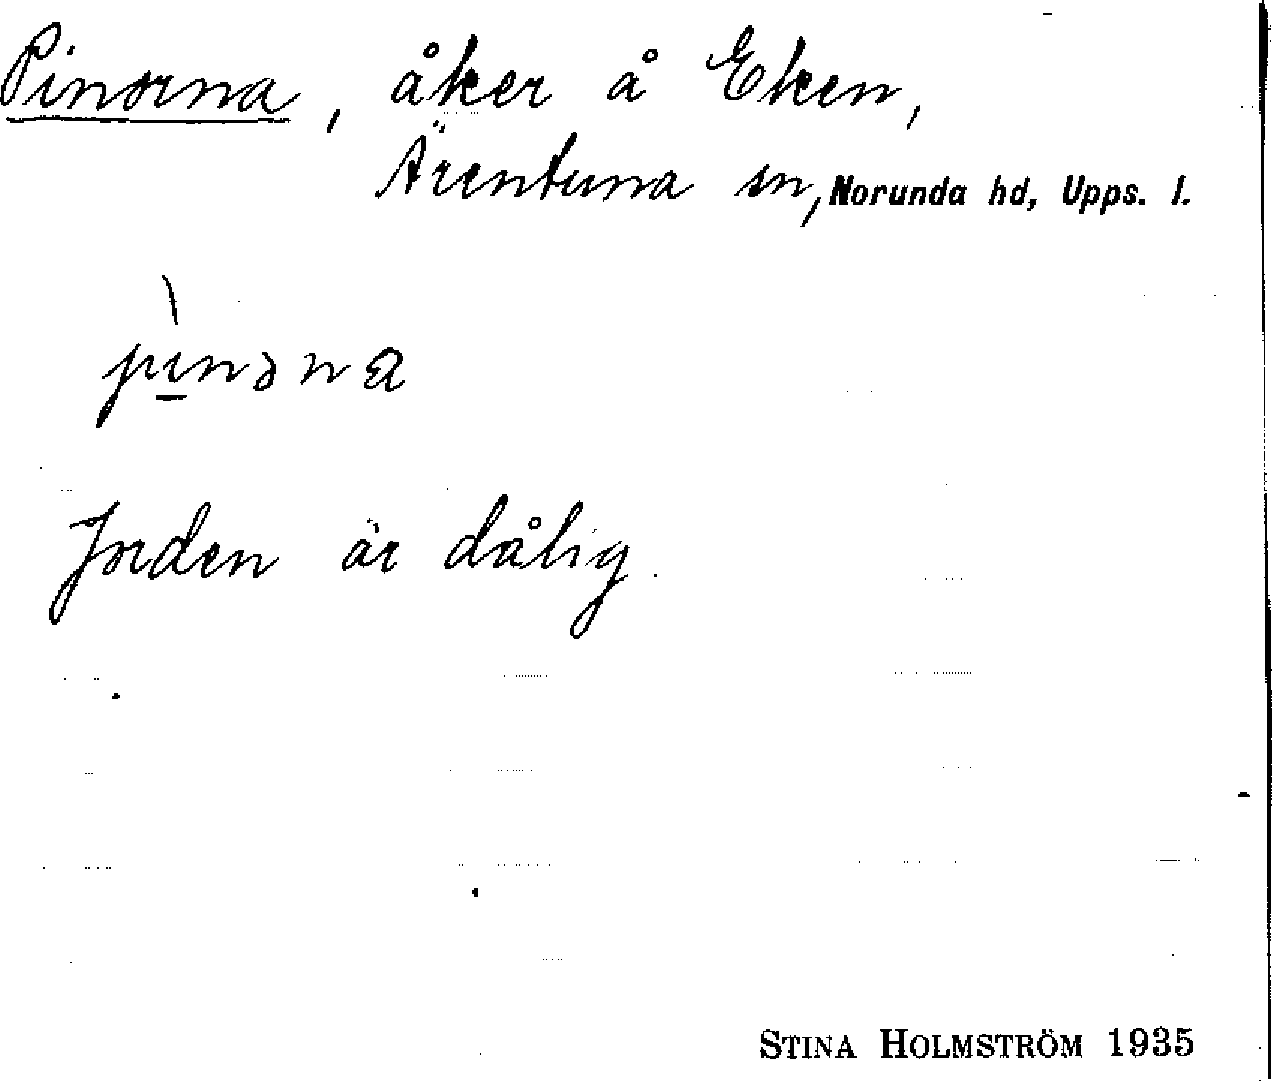 Pinorna, åker å Eken,
Ärentuna sn, Norunda hd, Upps. l.
pı̱nəna
Jorden är dålig.
STINA HOLMSTRÖM 1935